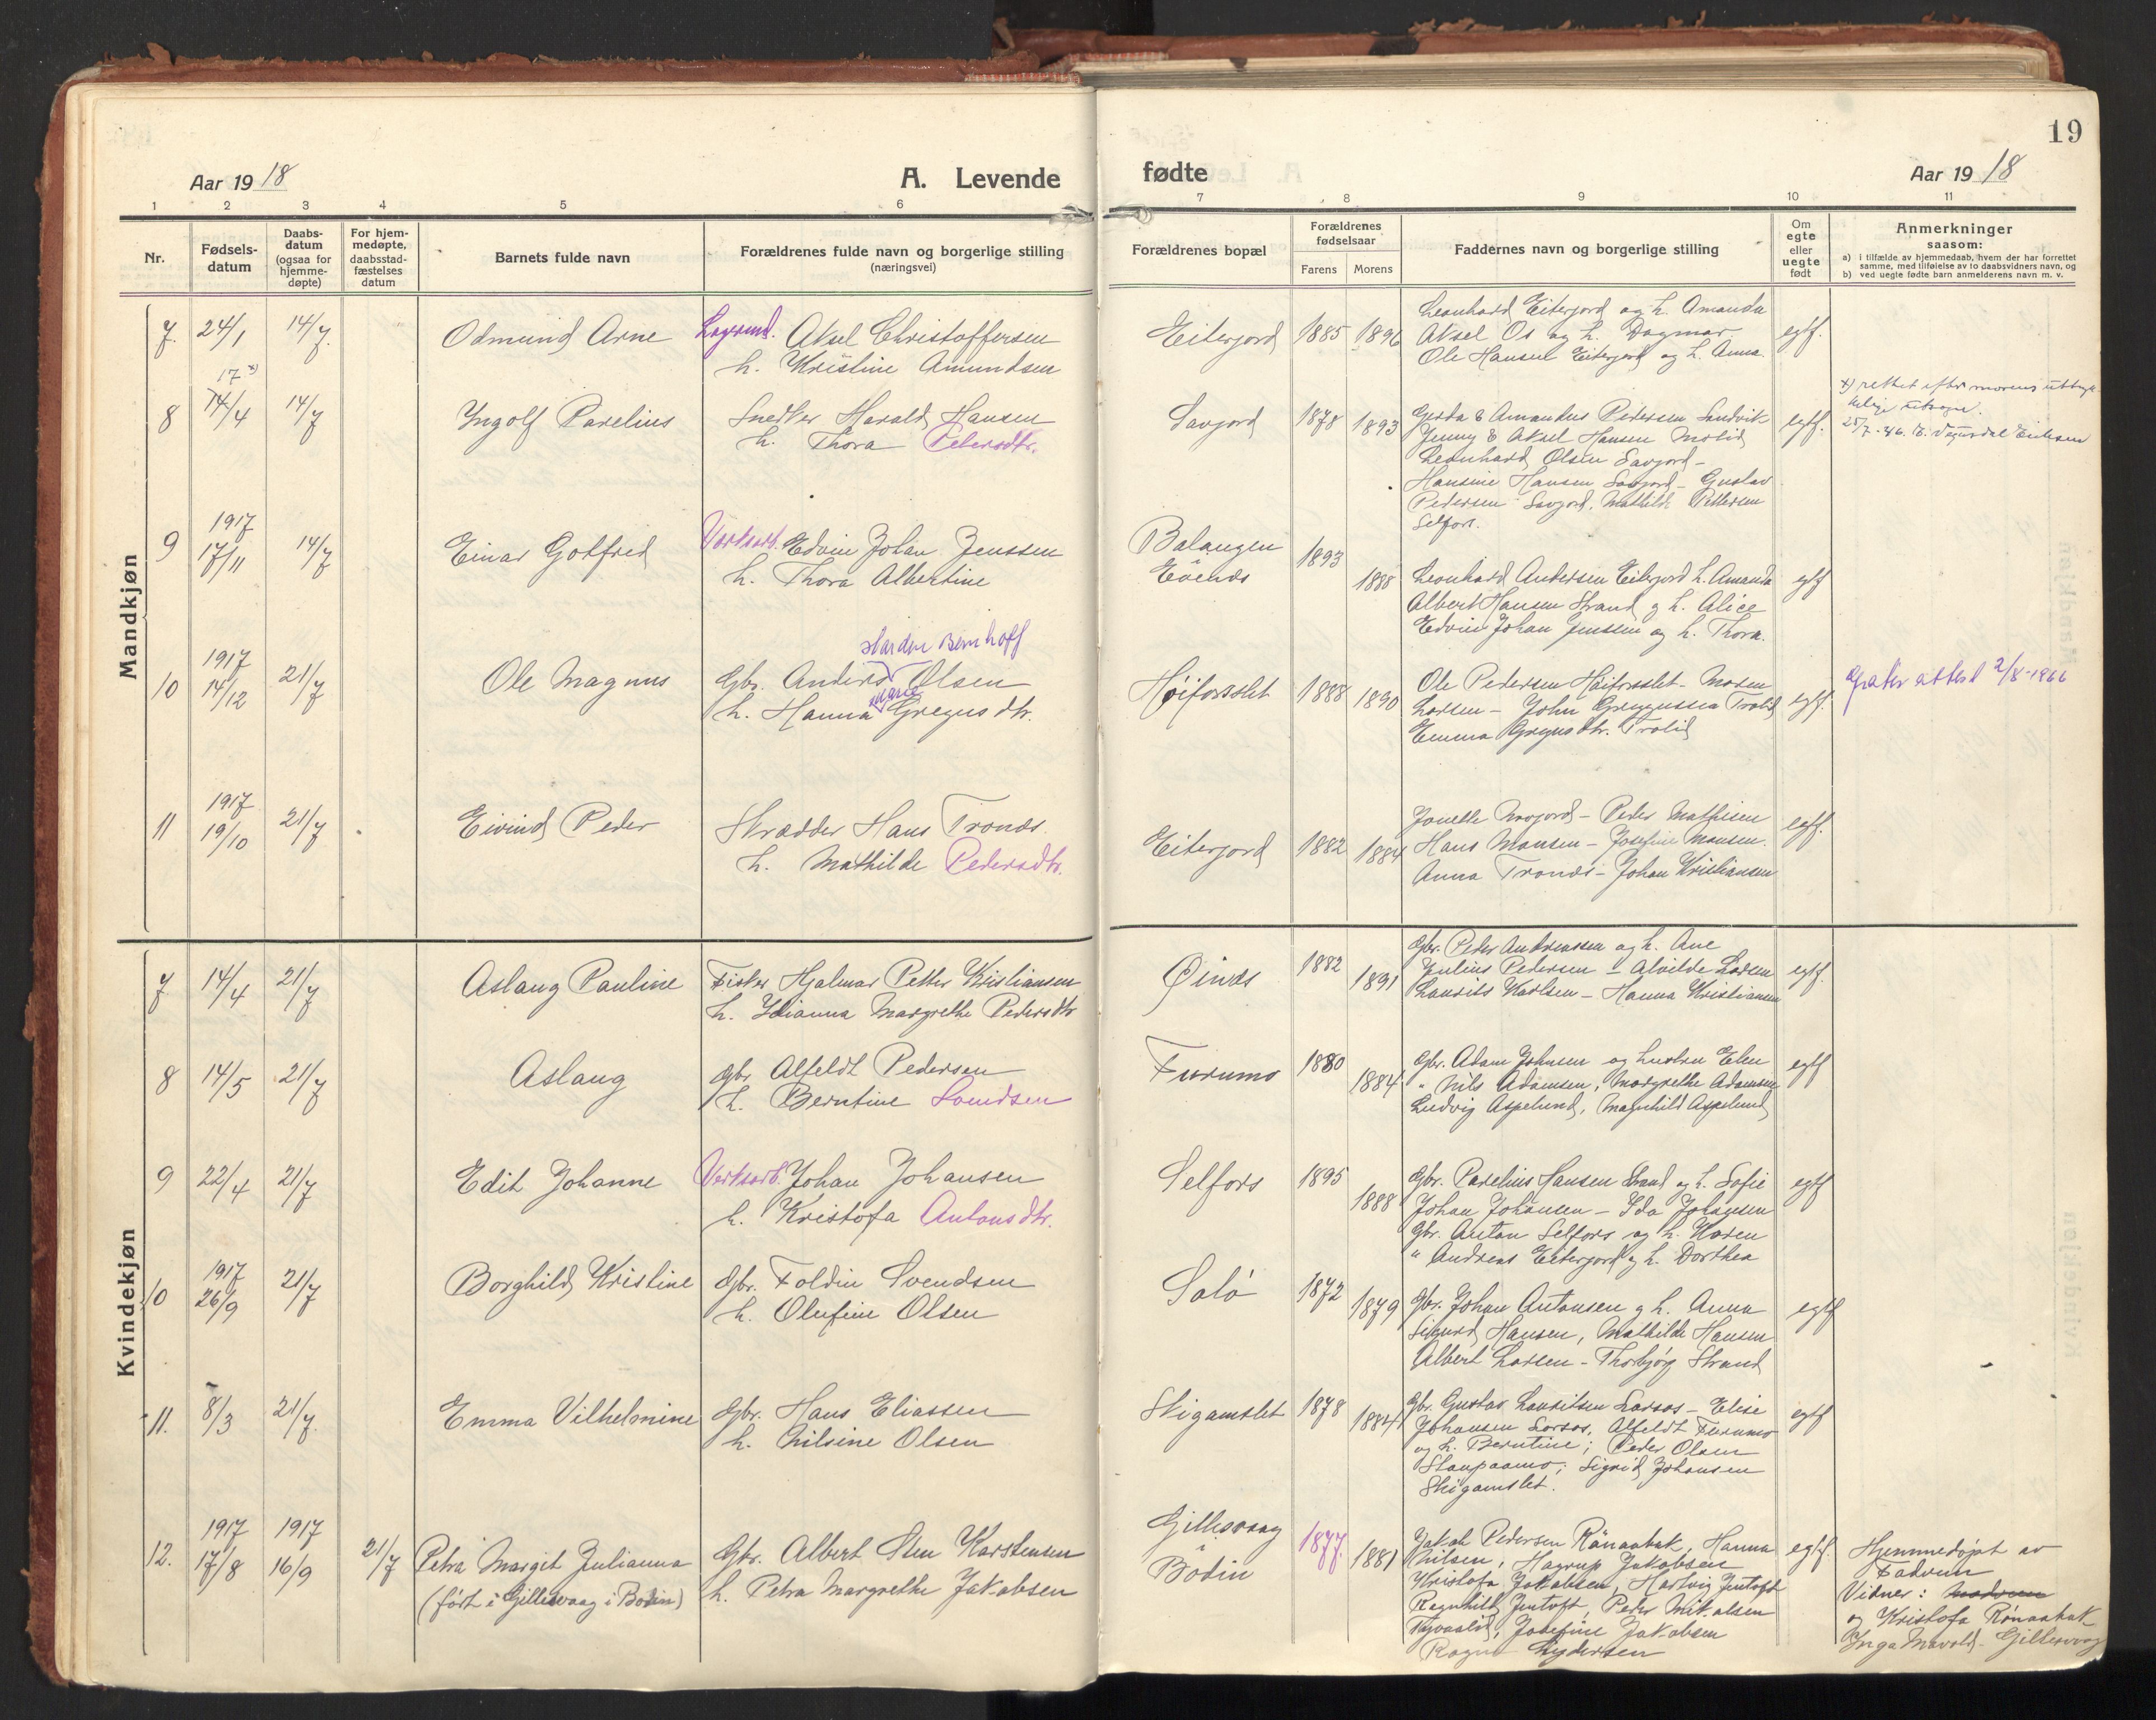 19
Aar 19 18
A. Levende
fødte
Aar 19 18
1 2 3 4 5 6 7 8 9 10 11
Nr.
Fødsels-
datum
Daabs-
datum
(ogsaa for
hjemme-
døpte)
For hjem-
medøpte,
daabsstad-
fæstelses
datum
Barnets fulde navn
Forældrenes fulde navn og borgerlige stilling
(næringsvei)
Forældrenes bopæl
Forældrenes
fødselsaar
Farens Morens
Faddernes navn og borgerlige stilling
Om
egte
eller
uegte
født
Anmerkninger
saasom:
a) i tilfælde av hjemmedaab, hvem der har forrettet
samme, med tilføielse av to daabsvidners navn, og
b) ved uegte fødte barn anmelderens navn m. v.
Mandkjøn
7. 24/1 14/7. Odmund Arne
Aksel Christoffersen
h. Kristine Amundsen
Eiterjord 1885 1896
Leonhard Eiterjord og h. Amanda
Aksel Os og h. Dagmar
Ole Hansen Eiterjord og h. Anna.
egtf.
17 x)
8 14/4 14/7 Ingolf Parelius
Snedker Harald Hansen
h. Thora Pedersdtr.
Savjord 1878 1893
Gerda & Amandus Pedersen Sandvik
Jenny & Aksel Hansen Molid
Leonhard Olsen Savjord -
Hansine Hansen Savjord - Gustav
Pedersen Savjord. Mathilde Pettersen
Selfors.
egtf.
x) rettet efter morens uttryk-
kelige utsagn.
25/7-46. E. Eriksen
9 1917
17/11 14/7 Einar Gotfred
Verksarb. Edvin Johan Jenssen
h. Thora Albertine
Balangen
Evenes
1893 1888
Leonhard Andersen Eiterjord h. Amanda
Albert Hansen Strand og h. Alice
Edvin Johan Jenssen og h. Thora.
egtf
10 1917
14/12 21/7 Ole Magnus
Hardur Bernhoff
Gbr. Anders Olsen
Marie
h. Hanna Gregusdtr.
Høiforsslet 1888 1890
Ole Pedersen Høiforsslet - Maren
Larsen - John Gregussen Trolid
Emma Gregusdtr. Trolid
egtf.
Gratis attest 2/8-1966
11 1917
19/10 21/7 Eivind Peder
Skrædder Hans Tronds.
h. Mathilde Pedersdtr.
Eiterjord 1882 1884
Jonette Movjord - Peder Mathisen
Hans Monsen - Josefine Monsen.
Anna Tronds - Johan Kristiansen
egtf.
Kvindekjøn
7 14/4 21/7 Aslaug Pauline
Fisker Hjalmar Petter Kristiansen
h. Idianna Margrethe Pedersdtr
Øines 1882 1891
Gbr. Peder Andreassen og h. Ane
Julius Pedersen - Alvilde Larsen
Laurits Karlsen - Hanna Kristiansen
egtf.
8 14/5 21/7 Aslaug
gbr Alfeldt Pedersen
h. Berntine Svendsen
Furumo 1880 1884
Gbr. Adam Johnsen og hustru Elen
" Nils Adamsen, Margrethe Adamsen
Ludvig Aspelund, Magnhild Aspelund
egtf
9 22/4 21/7 Edit Johanne
Verksarb. Johan Johansen
h. Kristofa Antonsdtr.
Selfors 1895 1888
Gbr. Parelius Hansen Strand og h. Sofie
Johan Johansen - Ida Johansen
Gbr. Anton Selfors og h. Karen
" Andreas Eiterjord og h. Dorthea
egtf
10 1917
26/9 21/7 Borghild Kristine
Gbr. Foldin Svendsen
h. Olufine Olsen
Solø 1872 1879
Gbr. Johan Antonsen og h. Anna
Sigurd Hansen, Mathilde Hansen
Albert Larsen - Thorbjørg Strand
egtf
11. 8/3 21/7. Emma Vilhelmine
Gbr. Hans Eliassen
h. Nilsine Olsen
Skigamslet 1878 1884
Gbr. Gustav Lauritsen Larsos - Elise
Johansen Larsos, Alfeldt Furumo
og h. Berntine; Peder Olsen
Staupaamo; Sigrid Johansen
Skigamslet.
egtf
12. 1917
17/8 1917
16/9 21/7 Petra Margit Julianna
(født i Gillesvaag i Bodin)
Gbr. Albert Sten Karstensen
h. Petra Margrethe Jakobsen
Gillesvaag
i
Bodin
1877. 1881
Jakob Pedersen Rönaabak, Hanna
Nilsen, Hagrup Jakobsen
Kristofa Jakobsen, Hartvig Jentoft
Ragnhild Jentoft, Peder Mikalsen
Josefine Jakobsen
Ragna Lydersen
egtf.
Hjemmedøpt av
Fadren
Vidner: Madren
og Kristofa Rönaabak
Inga Gillesvaag